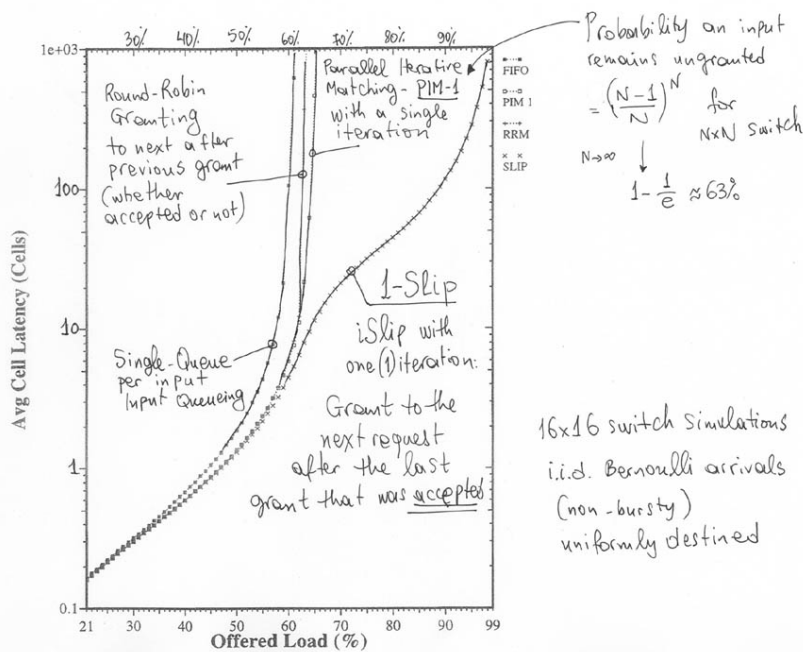 30% 40% 50% 60% 70% 80% 90%
1e+03
100
10
1
0.1
Avg Cell Latency (Cells)
21 30 40 50 60 70 80 90 99
Offered Load (%)
FIFO
PIM 1
RRM
SLIP
Round-Robin
Granting
to next after
previous grant
(whether
accepted or not)
Parallel Iterative
Matching - PIM-1
with a single
iteration
Single-Queue
per input
Input Queueing
1-Slip
iSlip with
one (1) iteration:
Grant to the
next request
after the last
grant that was accepted
Probability an input
remains ungranted
= (N-1/N)^N for
N×N switch
N→∞
1 - 1/e ≈ 63%
16x16 switch simulations
i.i.d. Bernoulli arrivals
(non-bursty)
uniformly destined